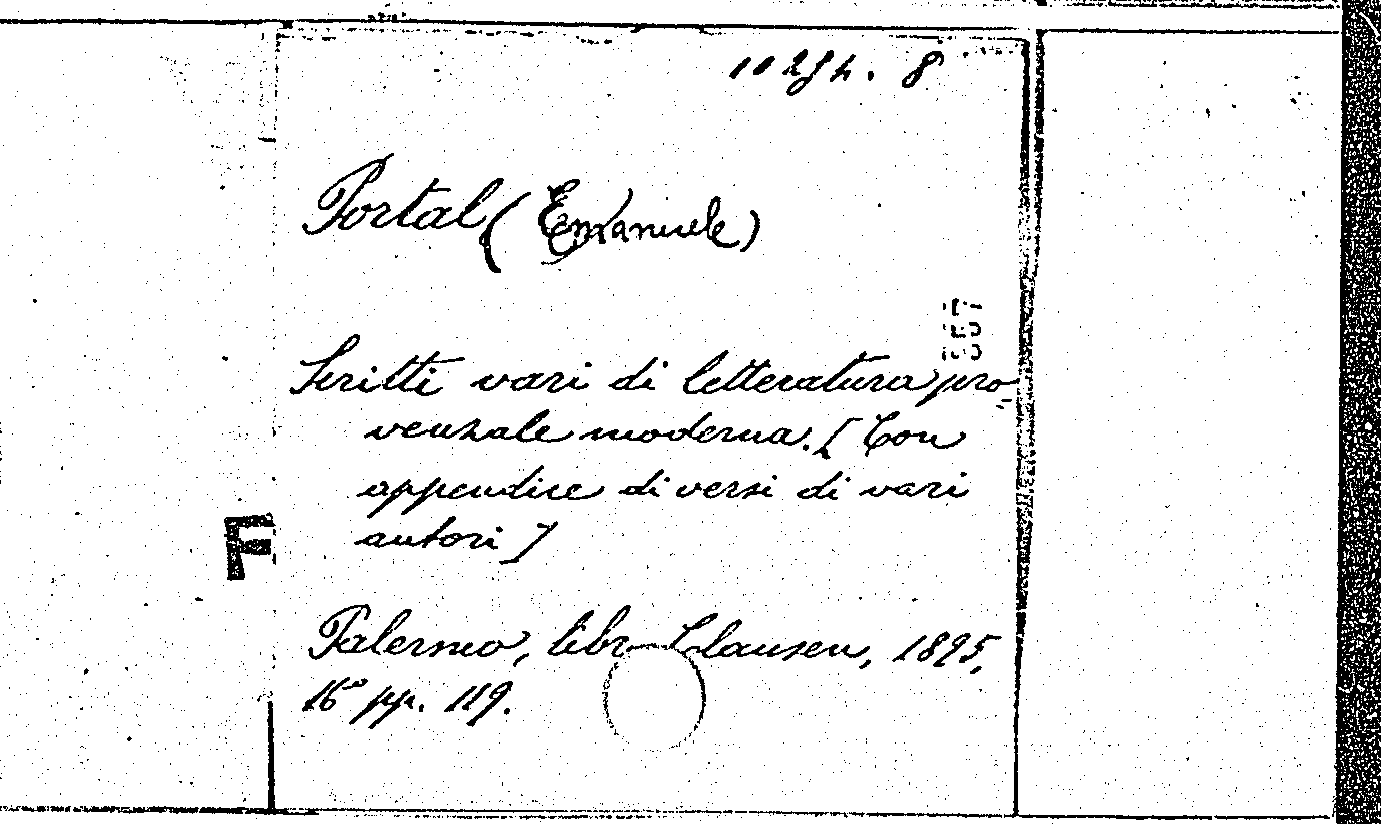 8
Portal (Emanuele)
Scritti vari di letteratura pro-
venzale moderna. [Con
appendice di versi di vari
autori]
F
Palermo, libr. Clausen, 1895,
16° pp. 119.